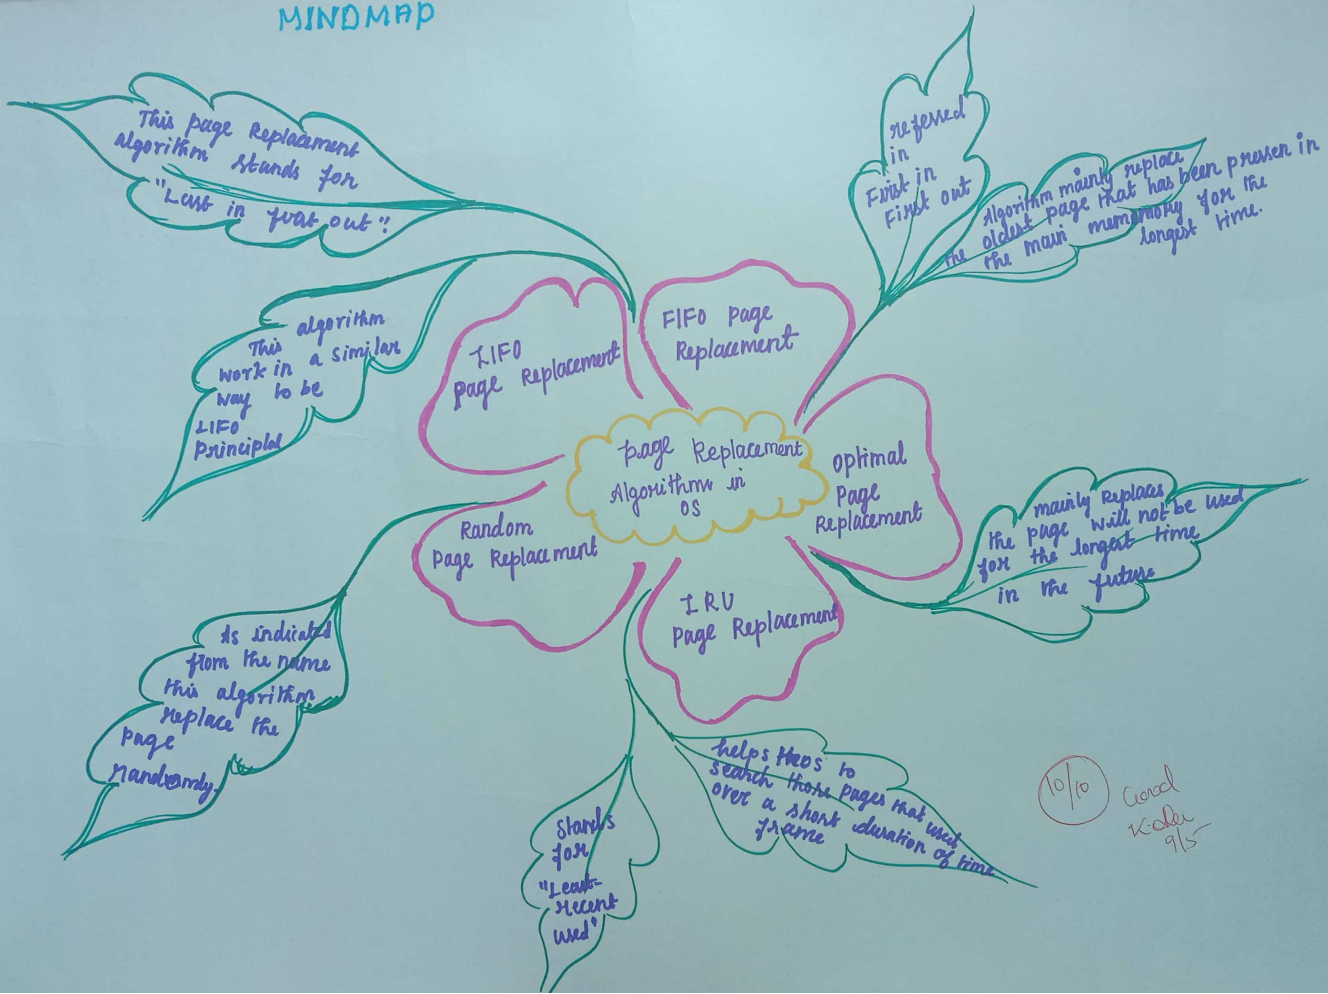 MINDMAP
This page Replacement
algorithm stands for
"Last in first out".
This algorithm
work in a similar
way to be
LIFO
principle
LIFO
Page Replacement
FIFO page
Replacement
referred
in
First in
First out
Algorithm mainly replace
the oldest page that has been pressen in
the main memomory for the
longest time.
Page Replacement
Algorithms in
OS
Optimal
Page
Replacement
mainly Replaces
the page will not be used
for the longest time
in the future
Random
Page Replacement
As indicated
from the name
this algorithm
replace the
page
randomly.
LRU
Page Replacement
Stands
for
"Least-
recent
used"
helps to
search those pages that used
over a short duration of time
frame
10/10
Good
9/5